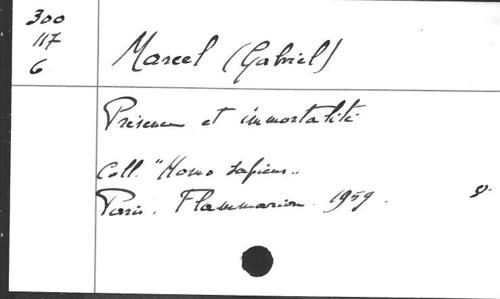 300
117
6
Marcel (Gabriel)
Présence et immortalité
Coll. "Homo sapiens"
Paris. Flammarion. 1959.
8°